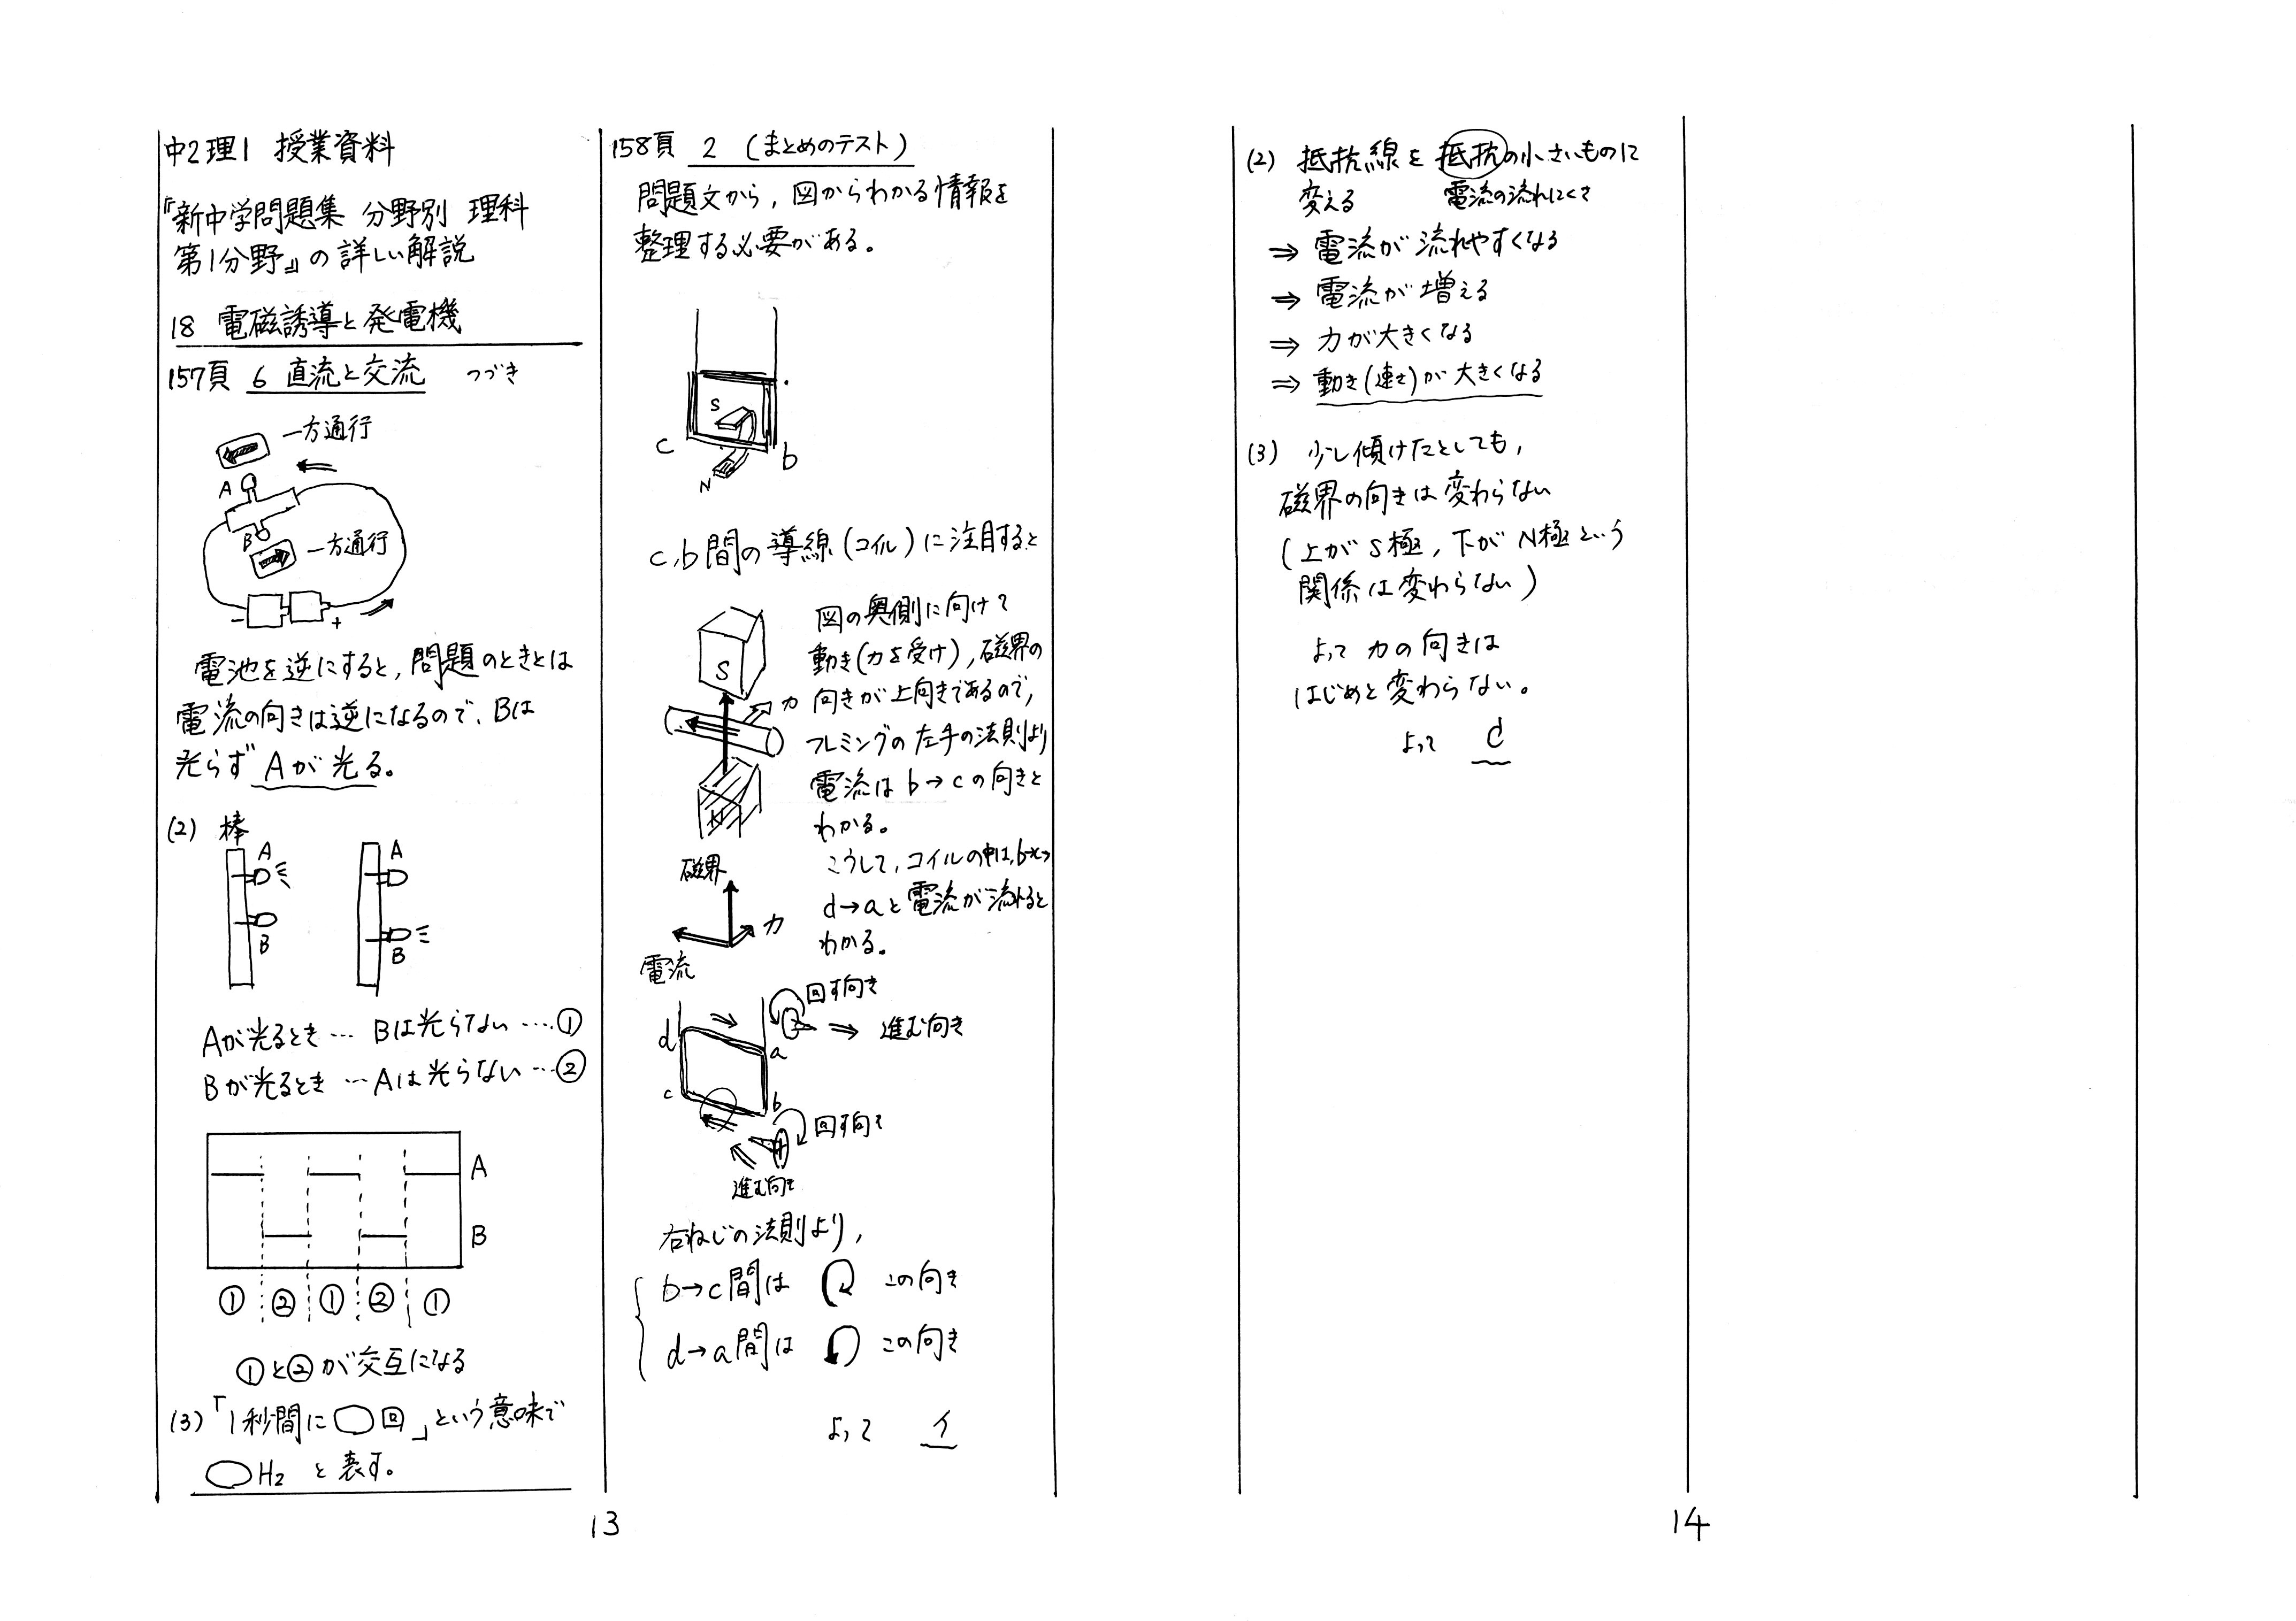 中2理1 授業資料
『新中学問題集 分野別 理科
第1分野』の詳しい解説
18 電磁誘導と発電機
157頁 6 直流と交流 つづき
一方通行
A
B
一方通行
− +
電池を逆にすると,問題のときとは
電流の向きは逆になるので、Bは
光らず Aが光る。
(2) 棒
A A
B B
Aが光るとき … Bは光らない …①
Bが光るとき … Aは光らない …②
A
B
① ② ① ② ①
①と②が交互になる
(3)「1秒間に○回」という意味で
○Hz と表す。
158頁 2 (まとめのテスト)
問題文から,図からわかる情報を
整理する必要がある。
S
c b
N
c,b間の導線(コイル)に注目すると
図の奥側に向けて
動き(力を受け),磁界の
向きが上向きであるので,
フレミングの左手の法則より
電流は b→cの向きと
わかる。
こうして,コイルの中は,b→c→
d→aと電流が流れると
わかる。
S
力
N
磁界
力
電流
回す向き
進む向き
d a
c b
回す向き
進む向き
右ねじの法則より,
b→c間は この向き
d→a間は この向き
よって イ
13
(2) 抵抗線を抵抗の小さいものに
変える 電流の流れにくさ
⇒ 電流が流れやすくなる
⇒ 電流が増える
⇒ 力が大きくなる
⇒ 動き(速さ)が大きくなる
(3) 少し傾けたとしても,
磁界の向きは変わらない
(上がS極,下がN極という
関係は変わらない)
よって 力の向きは
はじめと変わらない。
よって d
14